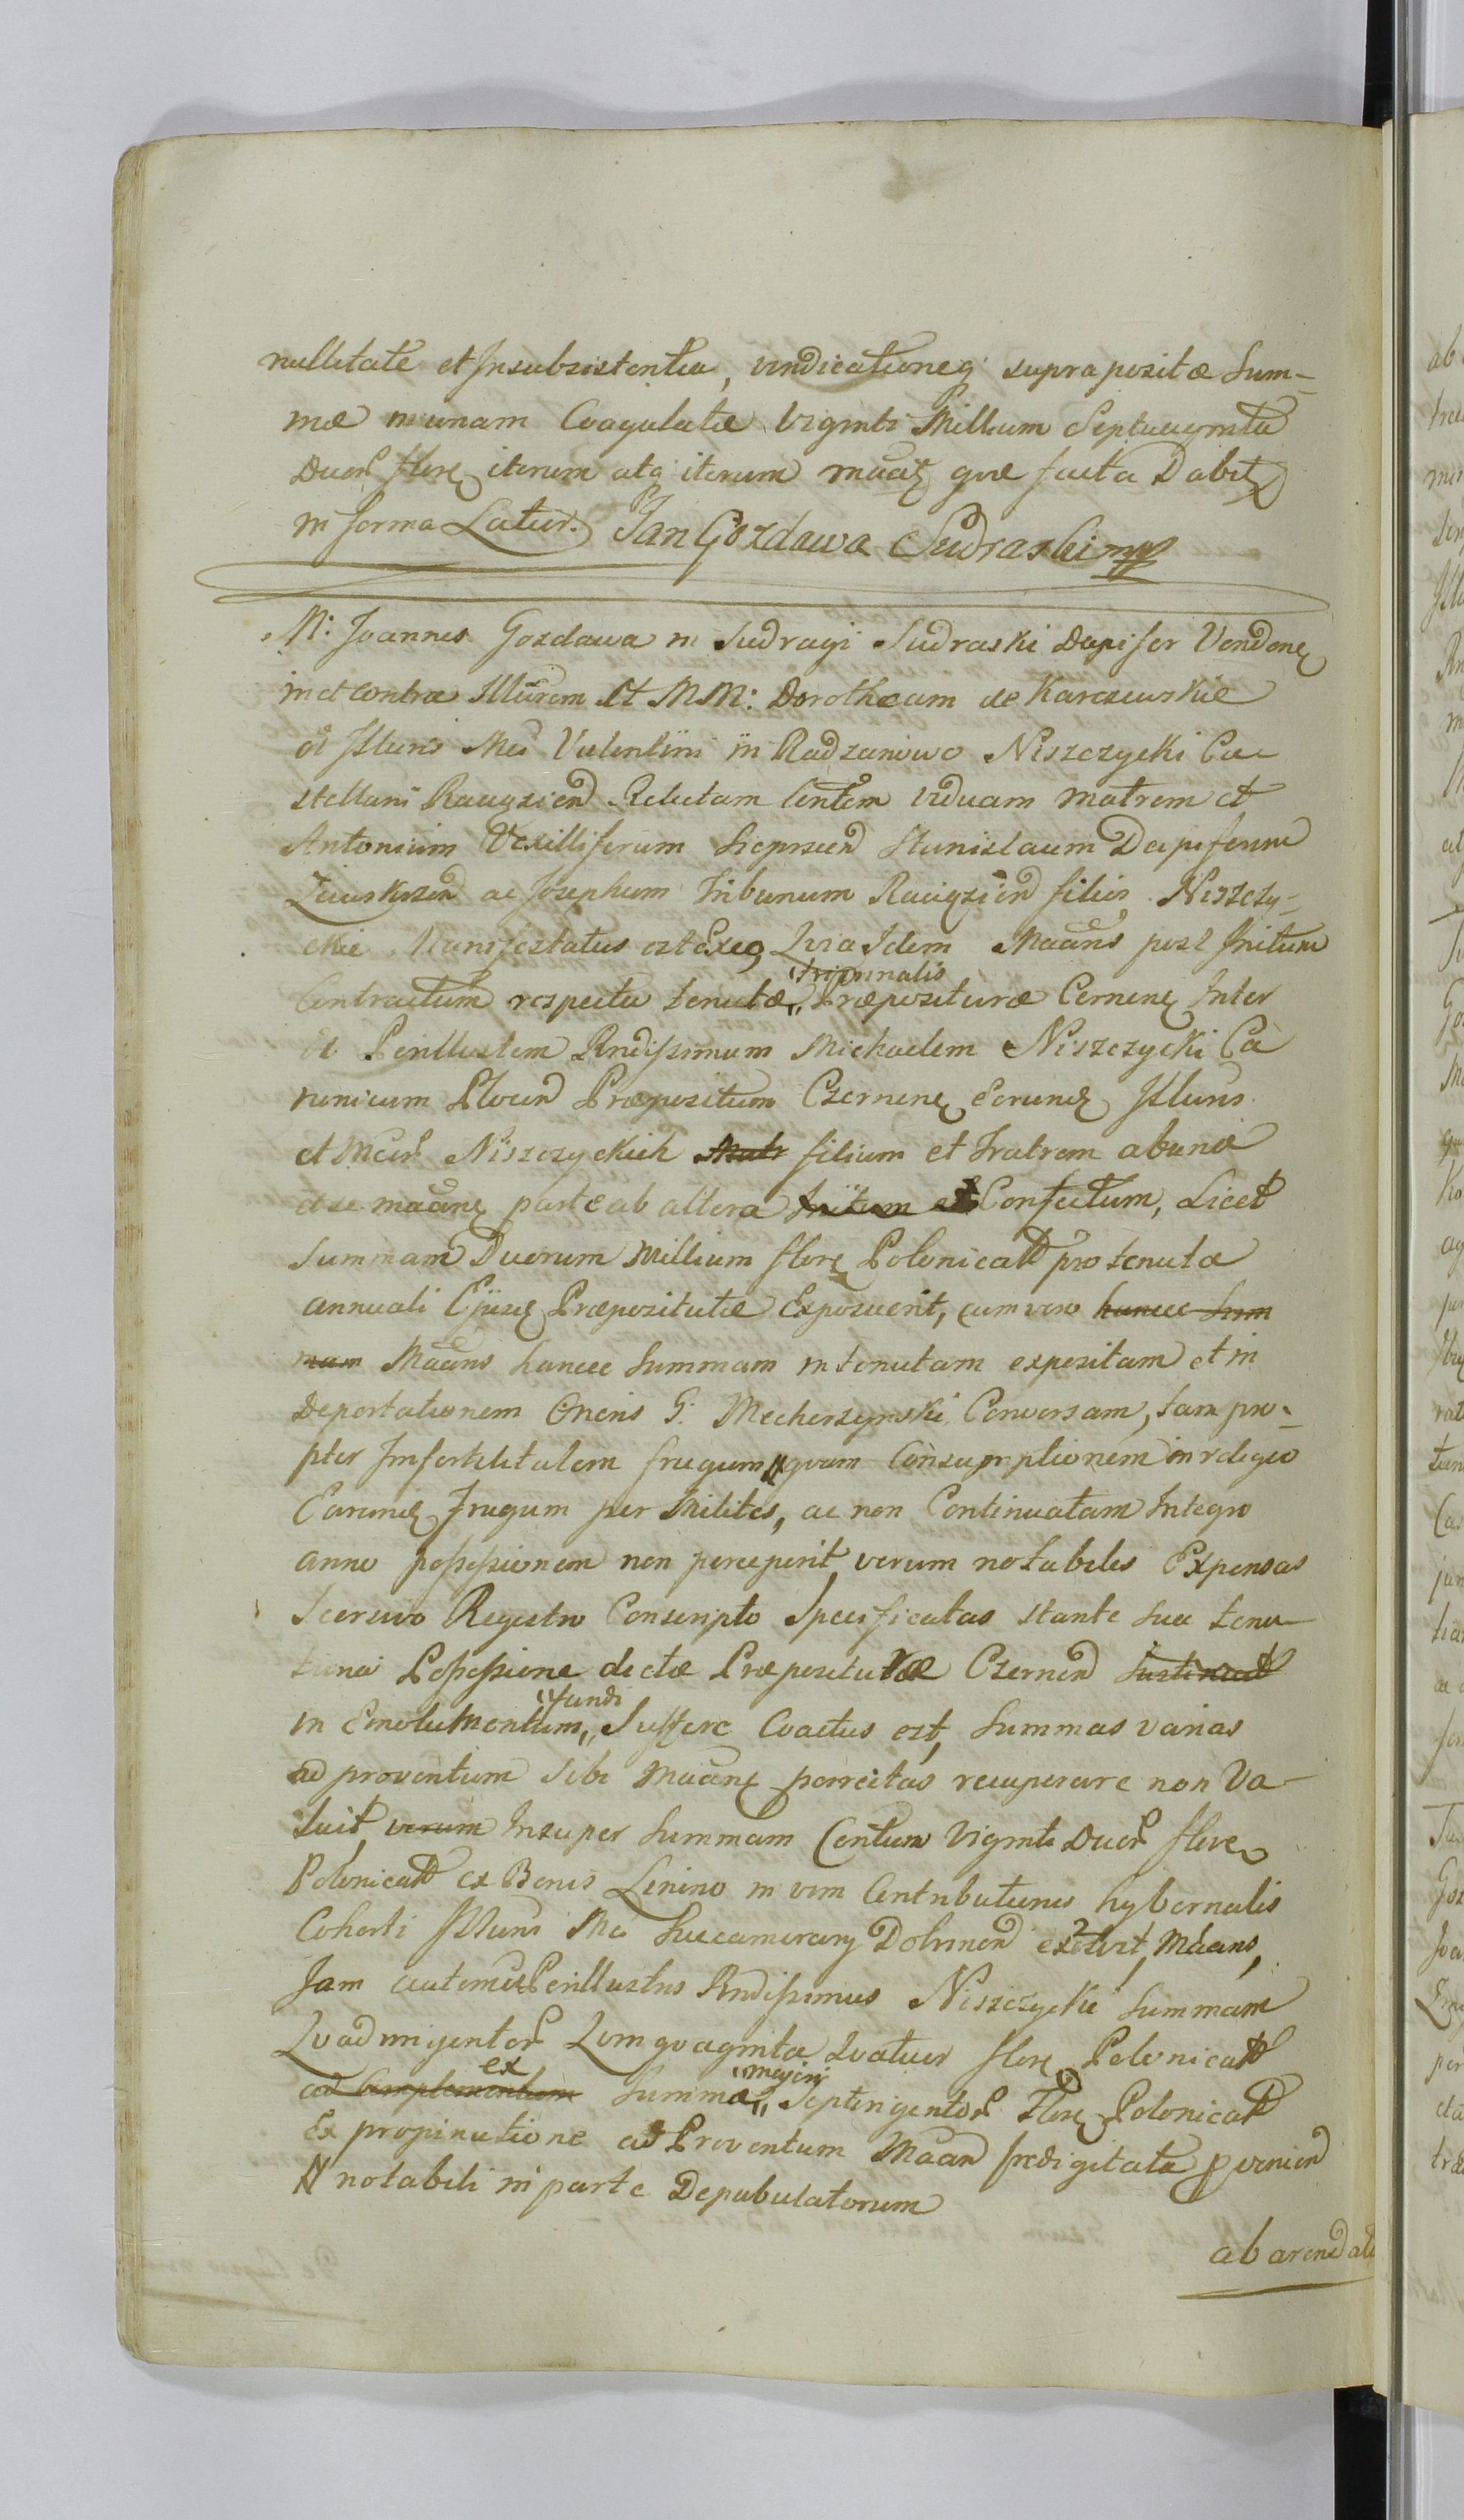 nullitate et Insubsistentia, vindicationeq supra positæ Sum-
mæ in unam Coagulatæ Viginti Millium Septuaginta
Duor flore iterum atq iterum maãtz quæ facta Dabitz
in forma Latior. Jan Gozdawa Sudraski mp
M: Joannes Gozdawa in Sudragi Sudraski Dapifer Venden
in et contra Illũrem et MM: Dorotheam de Karczewskie
ol Illuris Mci Valentini in Radzanowo Niszczycki Ca
stellani Raciązien Relictam Contem viduam matrem et
Antonium Vexilliferum Sieprcen Stanislaum Dapiferum
Zawskrzen ac Josephum Tribunum Raciązien filios Niszczy-
ckie Manifestatus est Exeo Quia Idem Maãns post Initum
Contractum respectu tenutæ "tripunnalis" Præposituræ Cernen Inter
et Perillustem Rndissimum Michaelem Niszczycki Ca
nonicum Plocen Præpositum Czernen Eorund Illuris
et Mcor Niszczyckich Matr filium et Fratrem ab una
et se maãne parte ab altera Initum et Confectum, Licet
Summam Duorum Millium flore Polonicalt pro tenuta
annuali Ejusd Præpositutæ Exposuerit, cum vero hancce Sum
mam Maãns hancce Summam in tenutam expositam et in
Deportationem Oneris G: Mecherzynski Conversam, tam pro-
pter Infertilitatem frugum quam Consumptionem in religio
Earund Frugum per Milites, ac non Continuatam Integro
anno possessionem non perceperit verum notabiles Expensas
Seorsivo Regestro Conscripto Specificatas stante sua tenu
tiona Possessione dictæ Præposituræ Czernen Sustinuit
in Emolumentum "fundi" Suffere Coactus est, Summas varias
ad proventum sibi Maãne porrectas recuperare non Va-
luit verum Insuper Summam Centum Viginti Duor flore
Polonicalt ex Bonis Lenino in vim Contributionis hybernalis
Cohorti Illuris Mci Succamerary Dobrinen exolvit Maãns,
Jam autem Perillustris Rndissimus Niszczycki Summam
Quadringentor Quinquaginta Quatuor flore Polonicalt
ad Complementum ex Summæ "majori" Septingentor Flore Polonicalt
Ex propinatione ad Proventum Maãn prædigitata provenien
N notabili in parte Depabulatorum
ab arendat